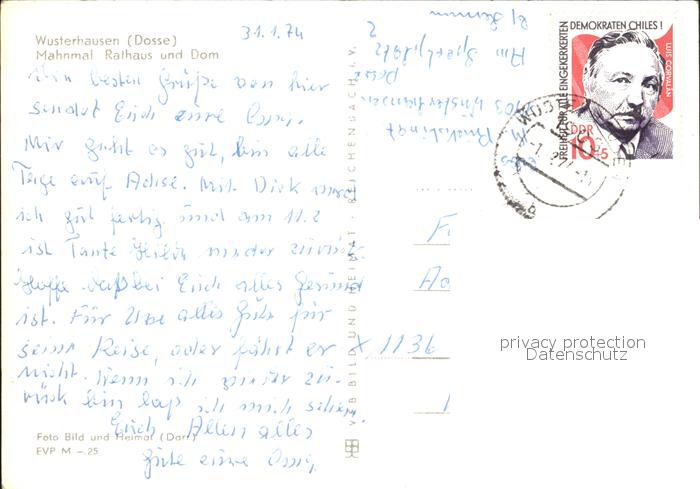 31.1.74
Wusterhausen (Dosse)
Mahnmal Rathaus und Dom
besten Grüße von hier
sendet Euch eure Omi.
Mir geht es gut, bin alle
Tage auf Achse. Mit Dirk
ich gut fertig und am 11.2
ist Tante wieder
Hoffe daß bei Euch alles gesund
ist. Für Uwe alles Gute für
seine Reise, oder fährt er
nicht. Wenn ich zu-
rück bin laß ich mich sehen.
Euch Allen alles
Gute eure Omi,
Foto Bild und Heimat (Darr)
EVP M –.25
VEB BILD UND HEIMAT · REICHENBACH i. V.
Am Sportplatz 2
1903 Wusterhausen
M
FREIHEIT FÜR ALLE EINGEKERKERTEN DEMOKRATEN CHILES !
LUIS CORVALÁN
DDR
10+5
1136
privacy protection
Datenschutz